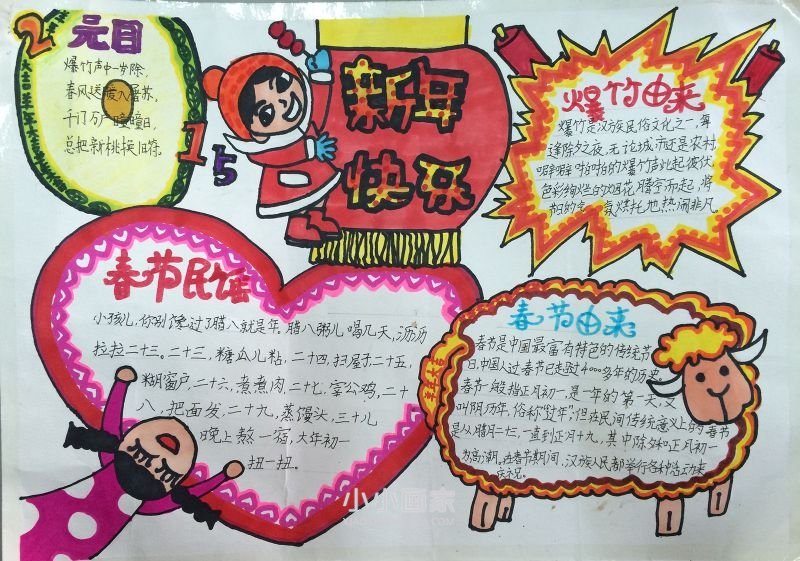 2
0
1
5
元日
爆竹声中一岁除,
春风送暖入屠苏.
千门万户曈曈日,
总把新桃换旧符.
大吉羊年大吉羊年
新年
快乐
爆竹由来
爆竹是汉族民俗文化之一,每
逢除夕之夜,无论城市还是农村
噼噼啪啪的爆竹声此起彼伏
色彩绚烂的烟花腾空而起,将
节日的气氛烘托地热闹非凡
春节民谣
小孩儿,你别馋,过了腊八就是年。腊八粥儿喝几天,沥沥
拉拉二十三。二十三,糖瓜儿粘,二十四,扫屋子二十五,
糊窗户,二十六,煮煮肉,二十七,宰公鸡,二十
八,把面发,二十九,蒸馒头,三十儿
晚上熬一宿,大年初一
扭一扭。
春节由来
春节是中国最富有特色的传统节
日,中国人过春节已走过4000多年的历史。
春节一般指正月初一,是一年的第一天,又
叫阴历年,俗称"过年"但在民间传统意义上的春节
是从腊月二十三,一直到正月十九,其中除夕和正月初一
为高潮。在春节期间,汉族人民都举行各种活动来
庆祝。
羊年大吉
小小画家